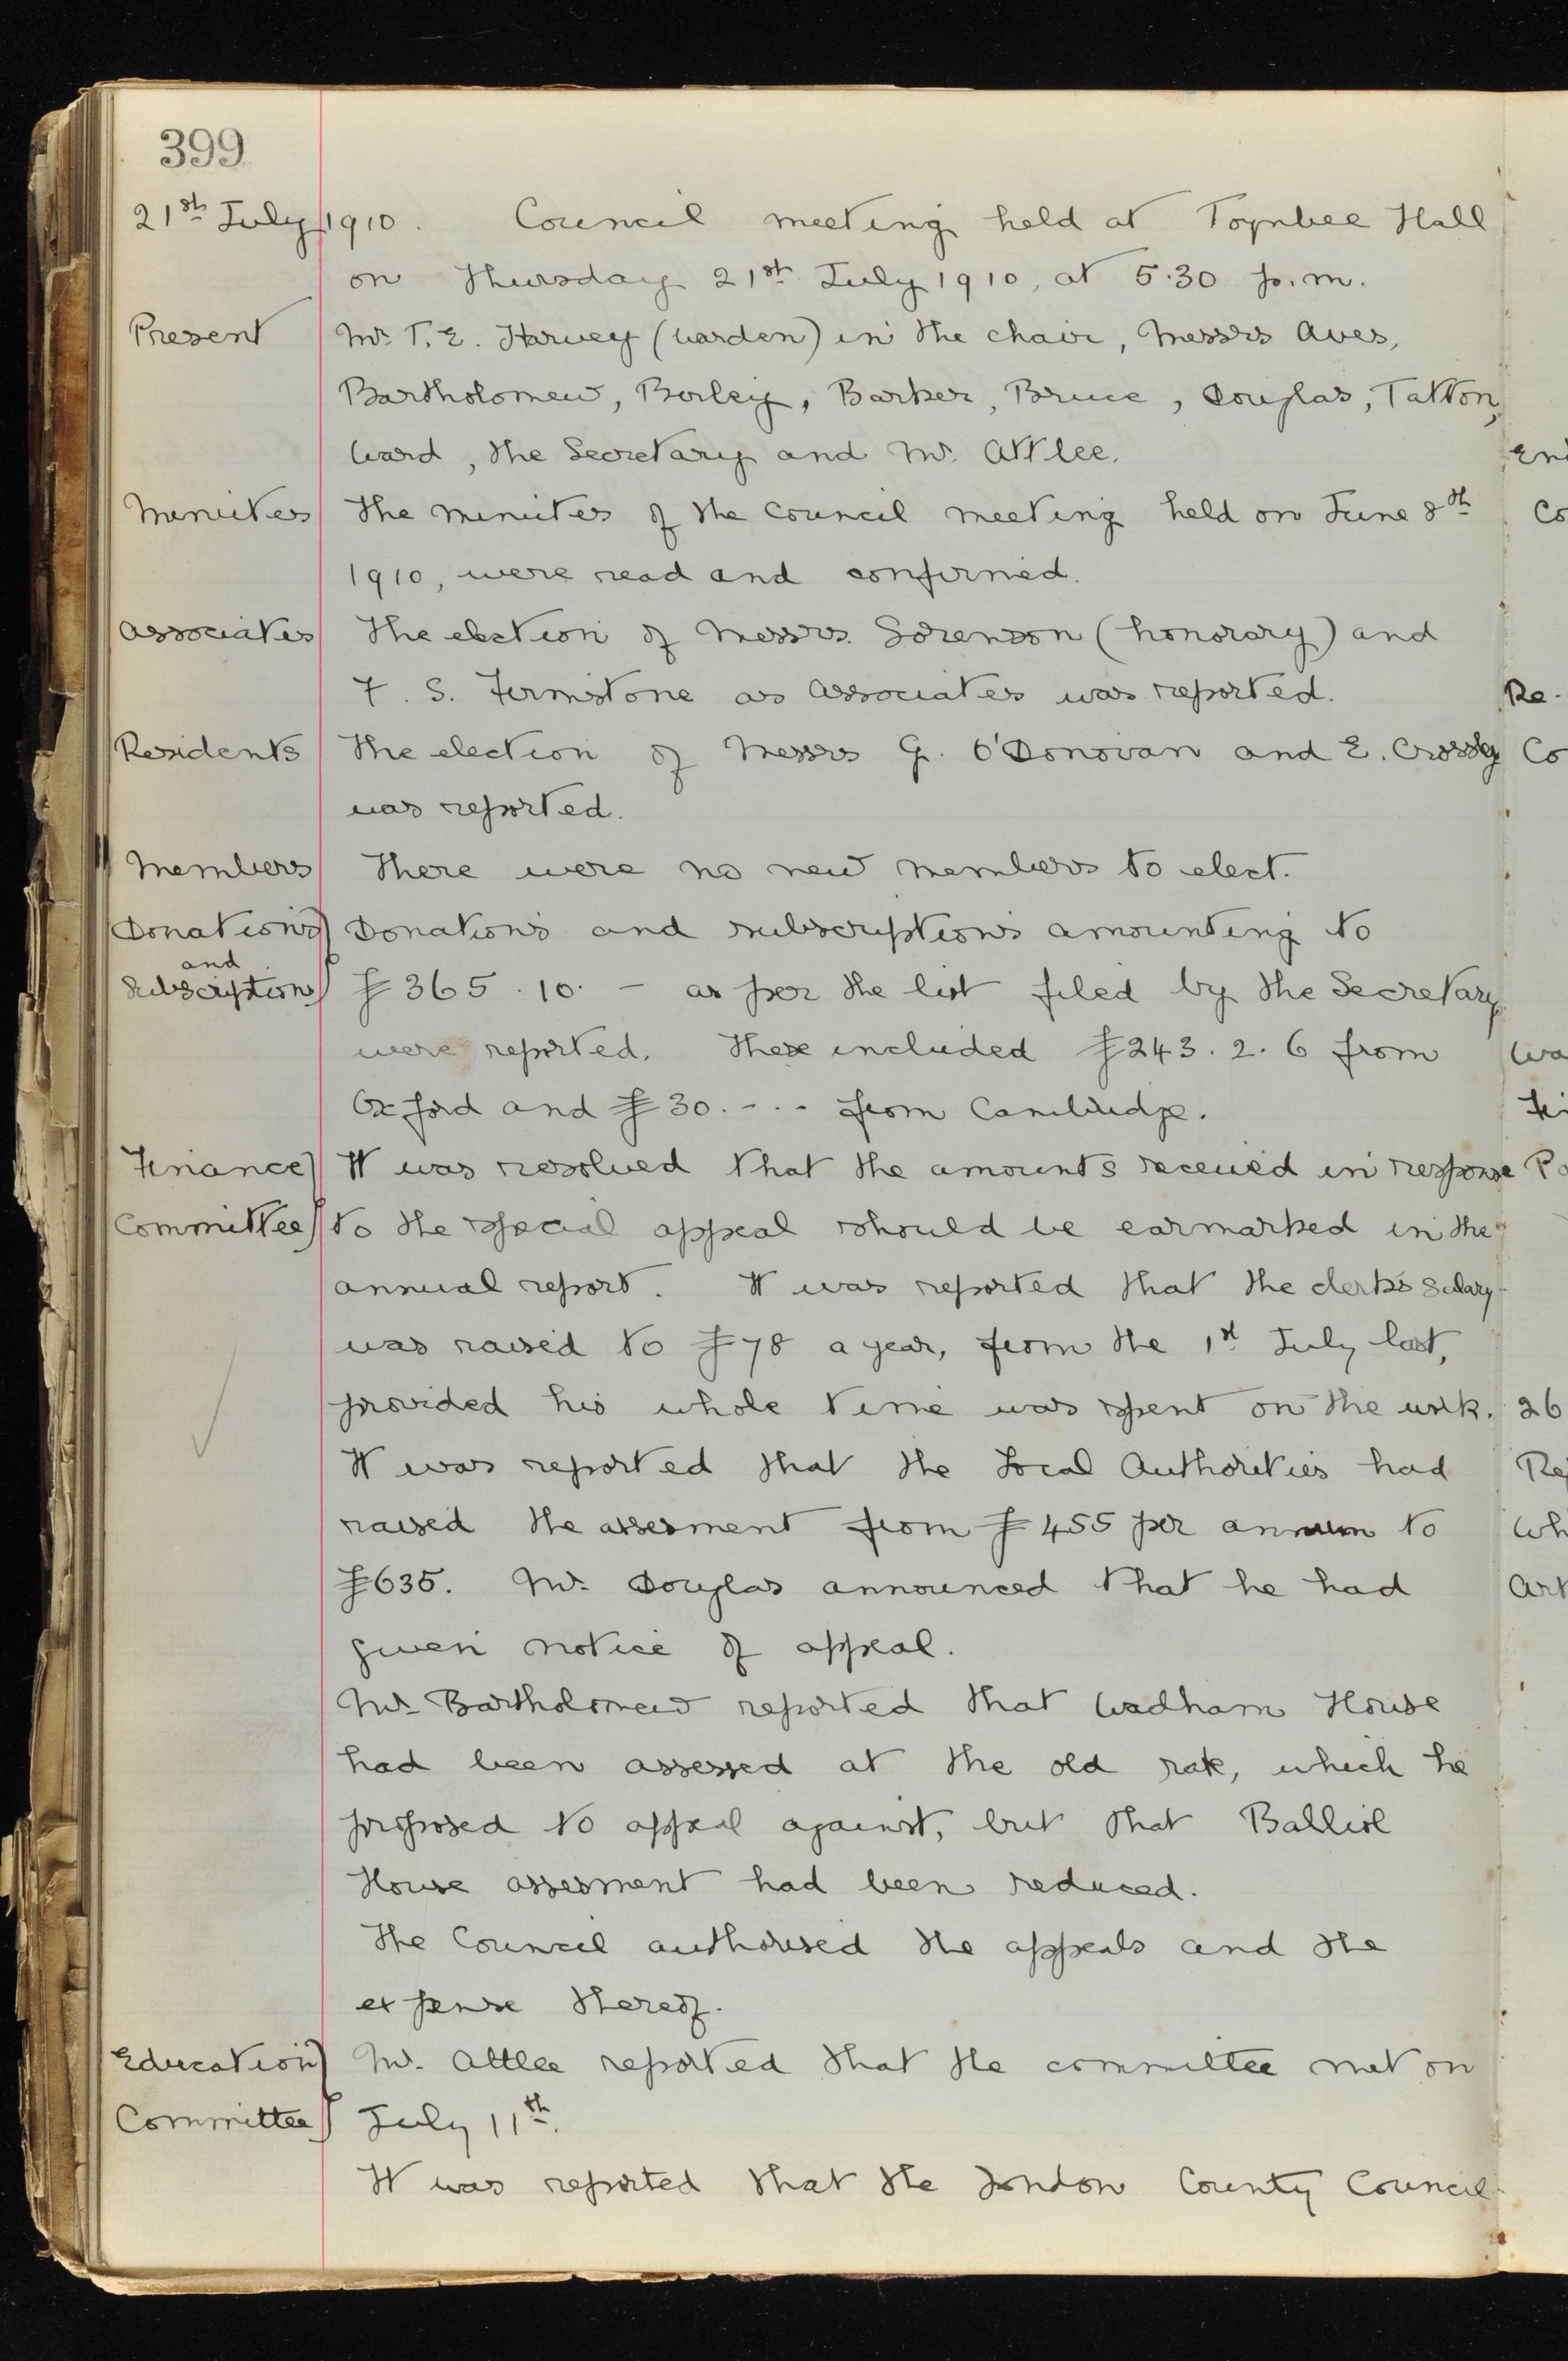 399
21st July 1910. Council meeting held at Toynbee Hall
on Thursday 21st July 1910, at 5.30 p.m.
Present Mr. T. E. Harvey (Warden) in the chair, Messrs Aves,
Bartholomew, Borley, Barker, Bruce, Douglas, Tatton,
Ward, the Secretary and Mr. Attlee.
Minutes The minutes of the Council meeting held on June 8th
1910, were read and confirmed.
Associates The election of Messrs. Sorenson (honorary) and
F. S. Firmstone as Associates was reported.
Residents The election of Messrs G. O'Donovan and E. Crossley
was reported.
Members There were no new members to elect.
Donations) Donations and subscriptions amounting to
and
Subscriptions) £365.10.- as per the list filed by the Secretary
were reported. These included £243.2.6 from
Oxford and £30.-.- from Cambridge.
Finance) It was resolved that the amounts received in response
Committee) to the special appeal should be earmarked in the
annual report. It was reported that the clerk's salary
was raised to £78 a year, from the 1st July last,
provided his whole time was spent on the work.
It was reported that the Local Authorities had
raised the assesment from £455 per annum to
£635. Mr. Douglas announced that he had
given notice of appeal.
Mr. Bartholomew reported that Wadham House
had been assessed at the old rate, which he
proposed to appeal against, but that Balliol
House assesment had been reduced.
The Council authorised the appeals and the
expense thereof.
Education) Mr. Attlee reported that the committee met on
Committee) July 11th.
It was reported that the London County Council